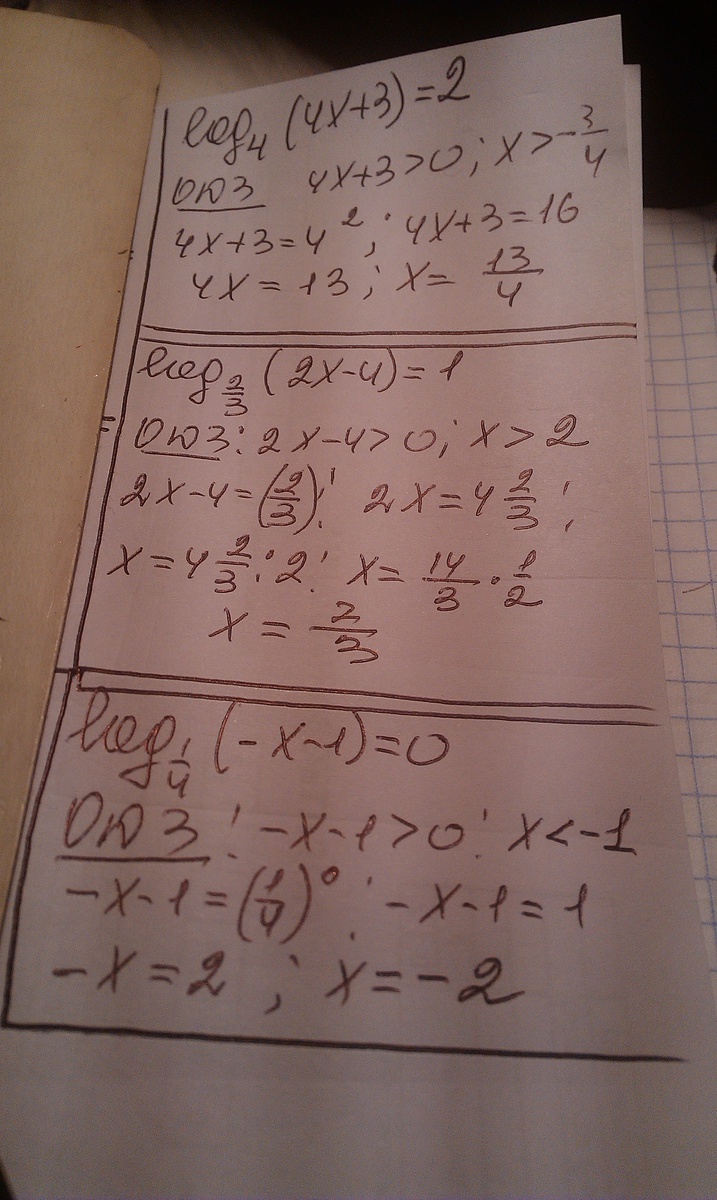 log₄ (4x+3)=2
ОДЗ 4x+3>0; x>-3/4
4x+3=4²; 4x+3=16
4x=13; x=13/4
log_{2/3} (2x-4)=1
ОДЗ: 2x-4>0; x>2
2x-4=(2/3)¹; 2x=4 2/3;
x=4 2/3:2; x=14/3·1/2
x=7/3
log_{1/4} (-x-1)=0
ОДЗ: -x-1>0; x<-1
-x-1=(1/4)⁰; -x-1=1
-x=2; x=-2